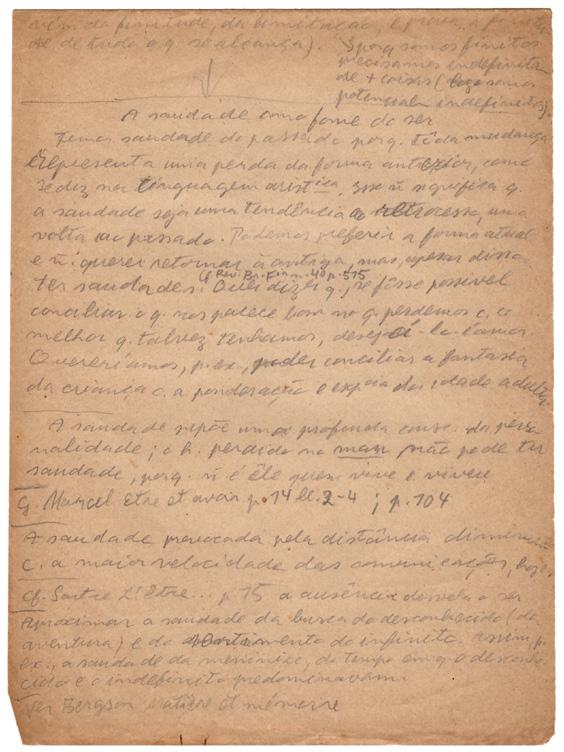 vém da finitude, da limitação, e prova a finitu
de de tudo o q. se alcança).
Sporq. somos finitos
precisamos indefinita/
de + coisas (logo somos
potencialm. indefinitos).
A saudade como fome de ser
Temos saudade do passado porq. tôda mudança
representa uma perda da forma anterior, como
se diz na linguagem aristica. Isse ñ significa q.
a saudade seja uma tendência ao retrocesso, uma
volta ao passado. Podemos preferir a forma atual
e ñ querer retornar à antiga, mas, apesar disso
ter saudades. Quer dizer q., se fôsse possível
cf Rev. Br. Fil. n. 40 p. 515
conciliar o q. nos parece bom no q. perdemos c. o
melhor q. talvez tenhamos, desejá-lo-íamos
Quereríamos, p. ex., poder conciliar a fantasia
da criança c. a ponderação e expcia da idade adulta.
A saudade supõe uma profunda consc. da perso
nalidade; o h. perdido no man não pode ter
saudade, porq. ñ é êle quem vive o viveu
G. Marcel Etre et avoir p. 14 ll. 2-4 ; p. 104
A saudade provocada pela distância diminuiu
c. a maior velocidade das comunicações, hoje.
Cf. Sartre L'Etre... p. 15 a ausência desvela o ser
Aproximar a saudade da busca do desconhecido (da
aventura) e do sentimento do infinito. Assim, p.
ex., a saudade da meninice, do tempo em q. o desconhe
cido e o indefinito predominavam.
Ver Bergson Matière et mémoire